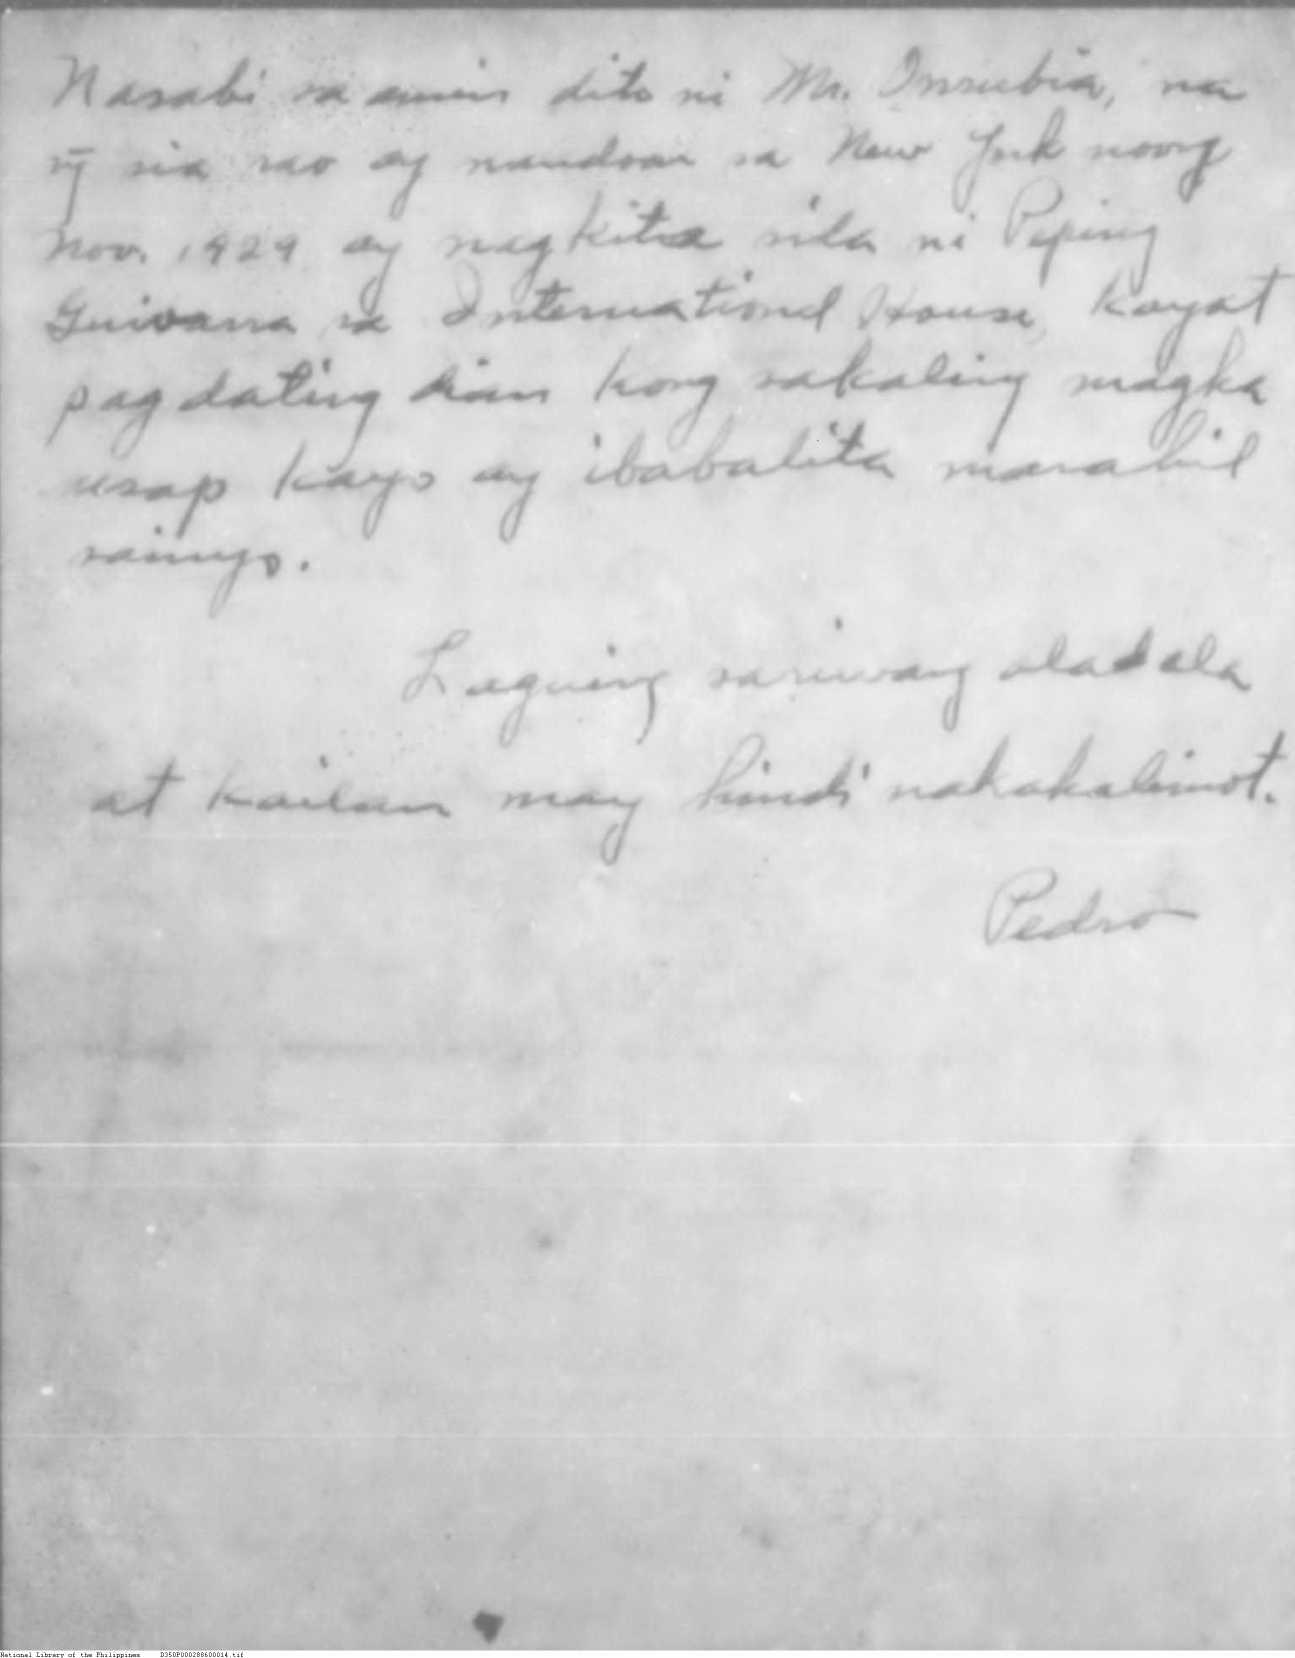 Nasabi sa amin dito ni Mr. Insubia, na
ñg sia rao ay nandoan sa New York noong
Nov. 1929 ay nagkita sila ni Peping
Guivara sa International House, kayat
pagdating dian kong sakaling magka
usap kayo ay ibabalita marahil
sainyo.
Laguing sariwang alaala
at kailan may hindi nakakalimot.
Pedro
National Library of the Philippines D350P000288600014.tif